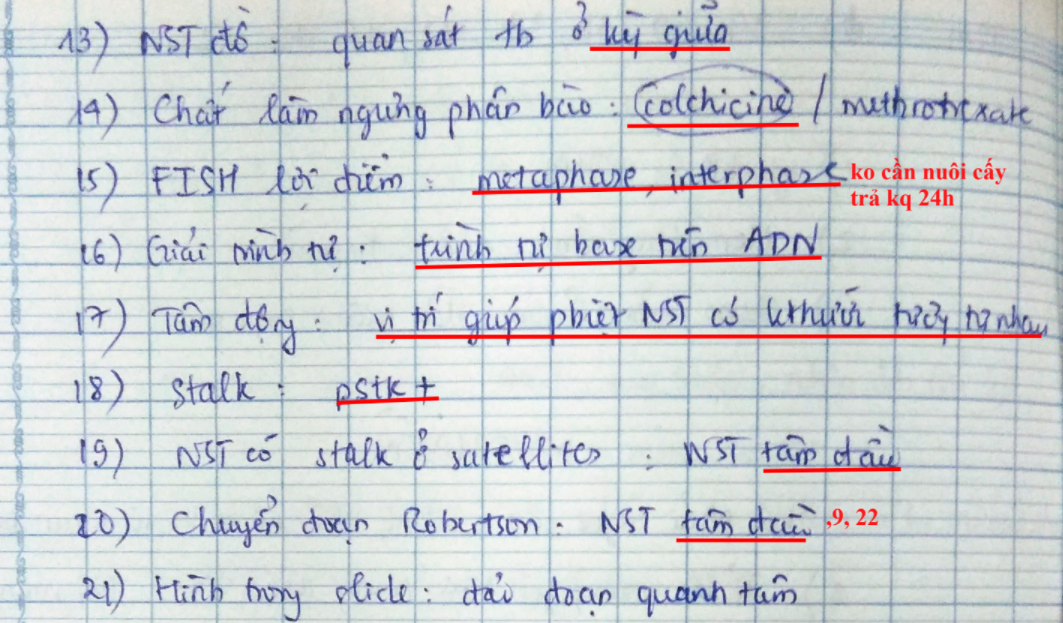 13) NST đồ : quan sát tb ở kỳ giữa
14) Chất làm ngưng phân bào : colchicine / methrotrexate
15) FISH lợi điểm : metaphase, interphase ko cần nuôi cấy
trả kq 24h
16) Giải trình tự : trình tự base trên ADN
17) Tâm động : vị trí giúp pbiệt NST có kthước tương tự nhau
18) Stalk : pstk +
19) NST có stalk ở satellites : NST tâm đầu
20) Chuyển đoạn Robertson : NST tâm đầu ,9, 22
21) Hình trong slide : đảo đoạn quanh tâm